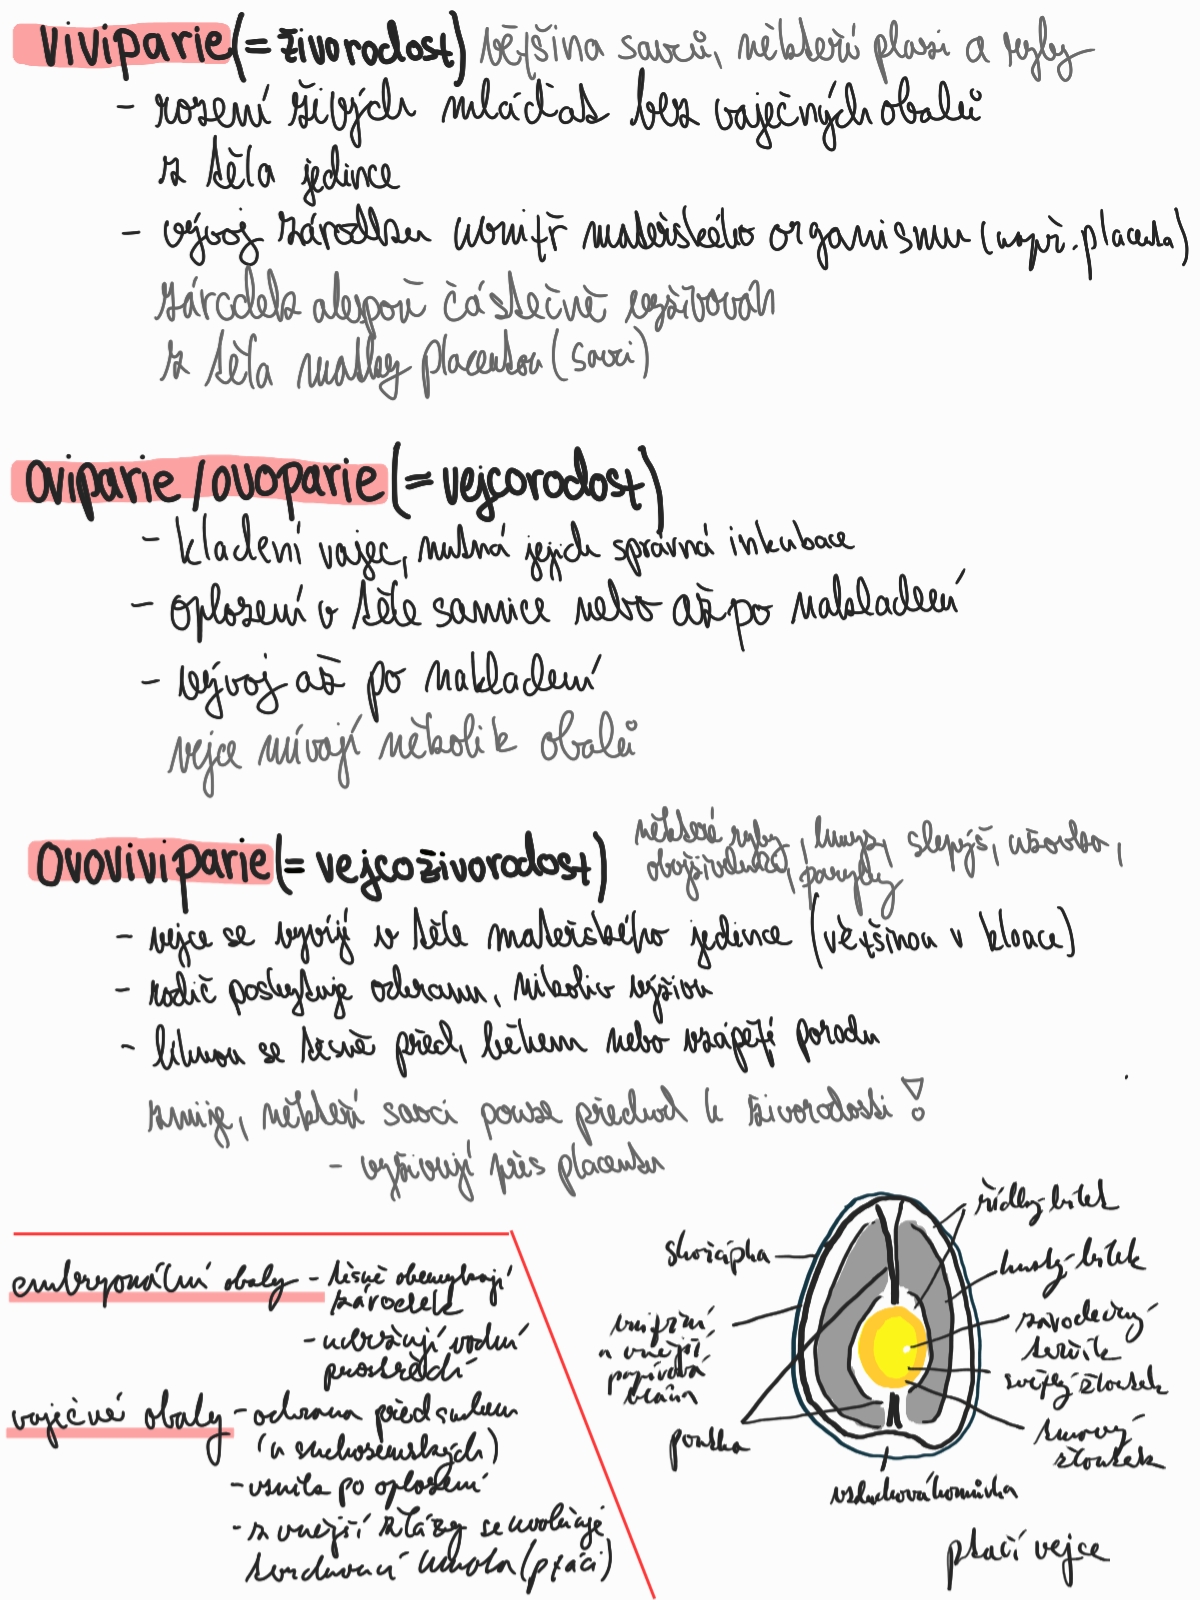 viviparie (= živorodost) většina savců, někteří plazi a ryby
- rození živých mláďat bez vaječných obalů
z těla jedince
- vývoj zárodku uvnitř mateřského organismu (např. placenta)
zárodek alespoň částečně vyživován
z těla matky placentou (savci)
oviparie / ovoparie (= vejcorodost)
- kladení vajec, nutná jejich správná inkubace
- oplození v těle samice nebo až po nakladení
- vývoj až po nakladení
vejce mívají několik obalů
ovoviviparie (= vejcoživorodost)
některé ryby, hmyz, slepýš, užovka,
obojživelníci, paryby
- vejce se vyvíjí v těle mateřského jedince (většinou v kloace)
- rodič poskytuje ochranu, nikoliv výživu
- líhnou se těsně před, během nebo vzápětí porodu
zmije, někteří savci pouze přechod k živorodosti !
- vyživují přes placentu
embryonální obaly - těsně obemykají
zárodek
- udržují vodní
prostředí
vaječné obaly - ochrana před suchem
(u suchozemských)
- vznik po oplození
- z vnější žlázy se uvolňuje
tvrdnoucí hmota (ptáci)
skořápka
vnitřní
a vnější
papírová
blána
poutka
řídký bílek
hustý bílek
zárodečný
terčík
světlý žloutek
tmavý
žloutek
vzduchová komůrka
ptačí vejce